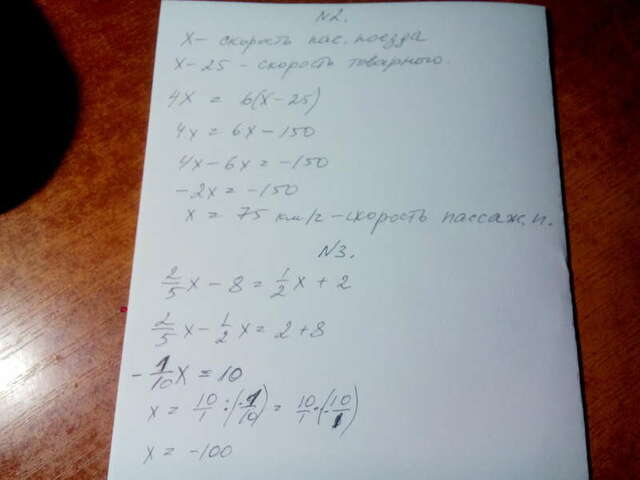 N2.
x – скорость пас. поезда
x – 25 – скорость товарного.
4x = 6(x – 25)
4x = 6x – 150
4x – 6x = –150
–2x = –150
x = 75 км/г – скорость пассаж. п.
N3.
2/5 x – 8 = 1/2 x + 2
2/5 x – 1/2 x = 2 + 8
– 1/10 x = 10
x = 10/1 : (–1/10) = 10/1 · (–10/1)
x = –100